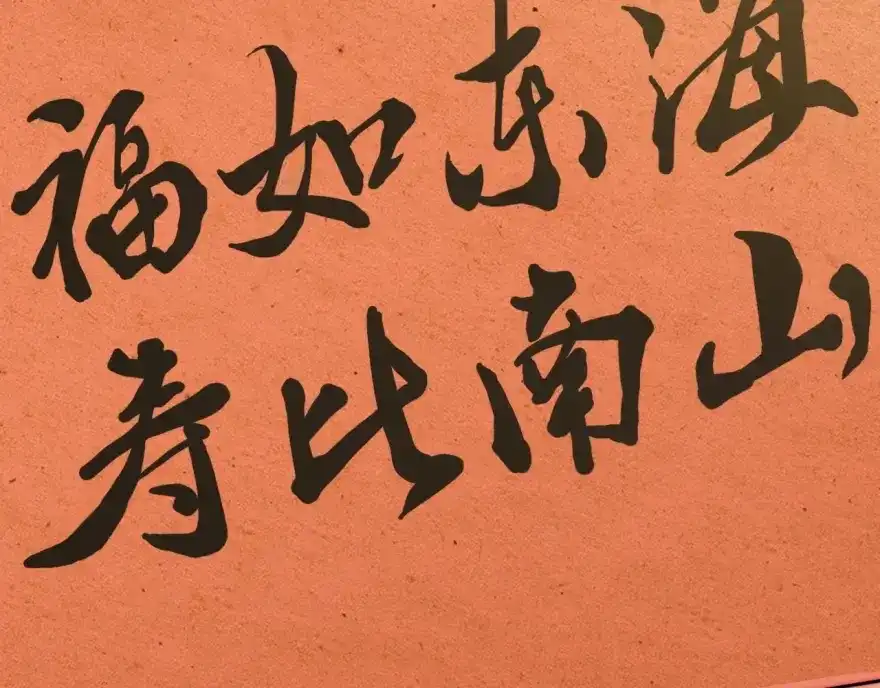 福如东海
寿比南山